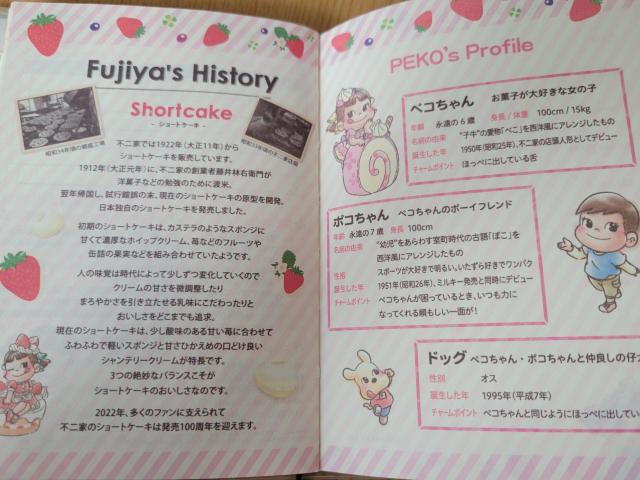 Fujiya's History
Shortcake
- ショートケーキ -
昭和34年頃の銀座工場
昭和33年頃の不二家店頭
不二家では1922年（大正11年）から
ショートケーキを販売しています。
1912年（大正元年）に、不二家の創業者藤井林右衛門が
洋菓子などの勉強のために渡米。
翌年帰国し、試行錯誤の末、現在のショートケーキの原型を開発。
日本独自のショートケーキを発売しました。
初期のショートケーキは、カステラのようなスポンジに
甘くて濃厚なホイップクリーム、苺などのフルーツや
缶詰の果実などを組み合わせていたようです。
人の味覚は時代によって少しずつ変化していくので
クリームの甘さを微調整したり
まろやかさを引き立せる乳味にこだわったりと
おいしさをどこまでも追求。
現在のショートケーキは、少し酸味のある甘い苺に合わせて
ふわふわで軽いスポンジと甘さひかえめの口どけ良い
シャンテリークリームが特長です。
3つの絶妙なバランスこそが
ショートケーキのおいしさなのです。
2022年、多くのファンに支えられて
不二家のショートケーキは発売100周年を迎えます。
PEKO's Profile
ペコちゃん お菓子が大好きな女の子
年齢 永遠の6歳 身長 / 体重 100cm / 15kg
名前の由来 "子牛"の愛称「べこ」を西洋風にアレンジしたもの
誕生した年 1950年（昭和25年）、不二家の店頭人形としてデビュー
チャームポイント ほっぺに出している舌
ポコちゃん ペコちゃんのボーイフレンド
年齢 永遠の7歳 身長 100cm
名前の由来 "幼児"をあらわす室町時代の古語「ぼこ」を
西洋風にアレンジしたもの
性格 スポーツが大好きで明るい、いたずら好きでワンパク
誕生した年 1951年（昭和26年）、ミルキー発売と同時にデビュー
チャームポイント ペコちゃんが困っているとき、いつも力に
なってくれる頼もしい一面が！
ドッグ ペコちゃん・ポコちゃんと仲良しの仔犬
性別 オス
誕生した年 1995年（平成7年）
チャームポイント ペコちゃんと同じようにほっぺに出してい